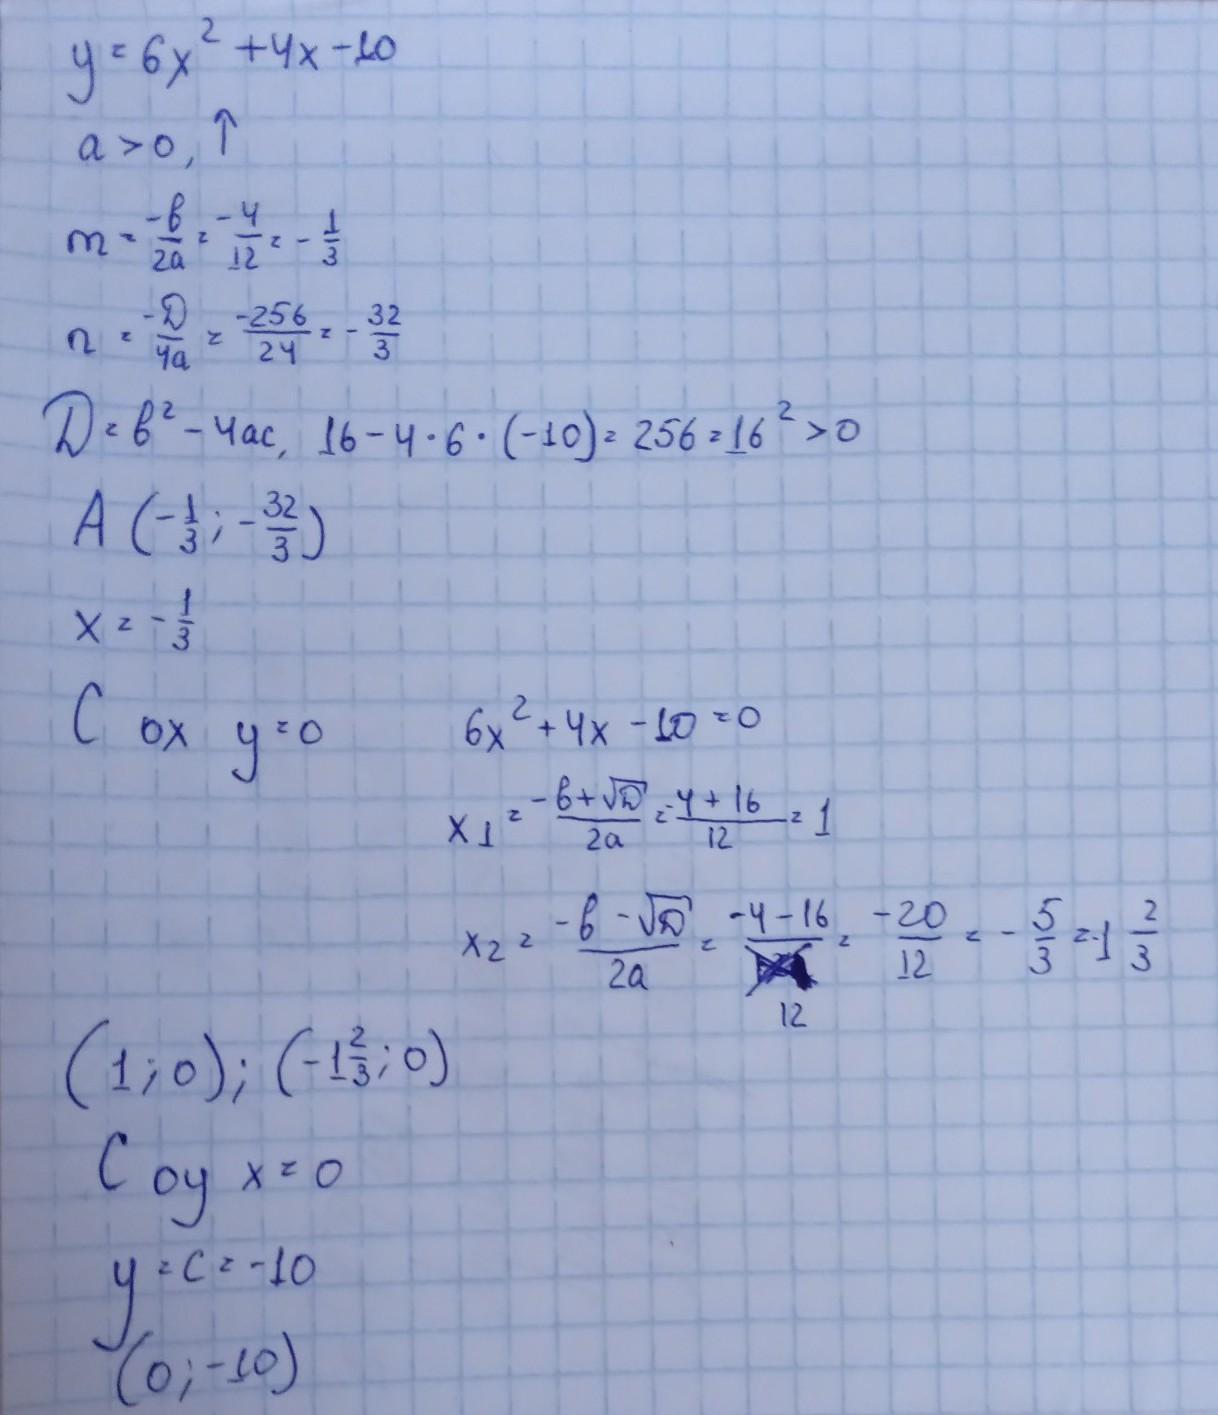 y = 6x² + 4x - 10
a > 0, ↑
m = -b/2a = -4/12 = -1/3
n = -D/4a = -256/24 = -32/3
D = b² - 4ac, 16 - 4 · 6 · (-10) = 256 = 16² > 0
A (-1/3; -32/3)
x = -1/3
С ox y = 0 6x² + 4x - 10 = 0
x₁ = -b + √D/2a = -4 + 16/12 = 1
x₂ = -b - √D/2a = -4 - 16/12 = -20/12 = -5/3 = -1 2/3
(1; 0); (-1 2/3; 0)
С oy x = 0
y = c = -10
(0; -10)